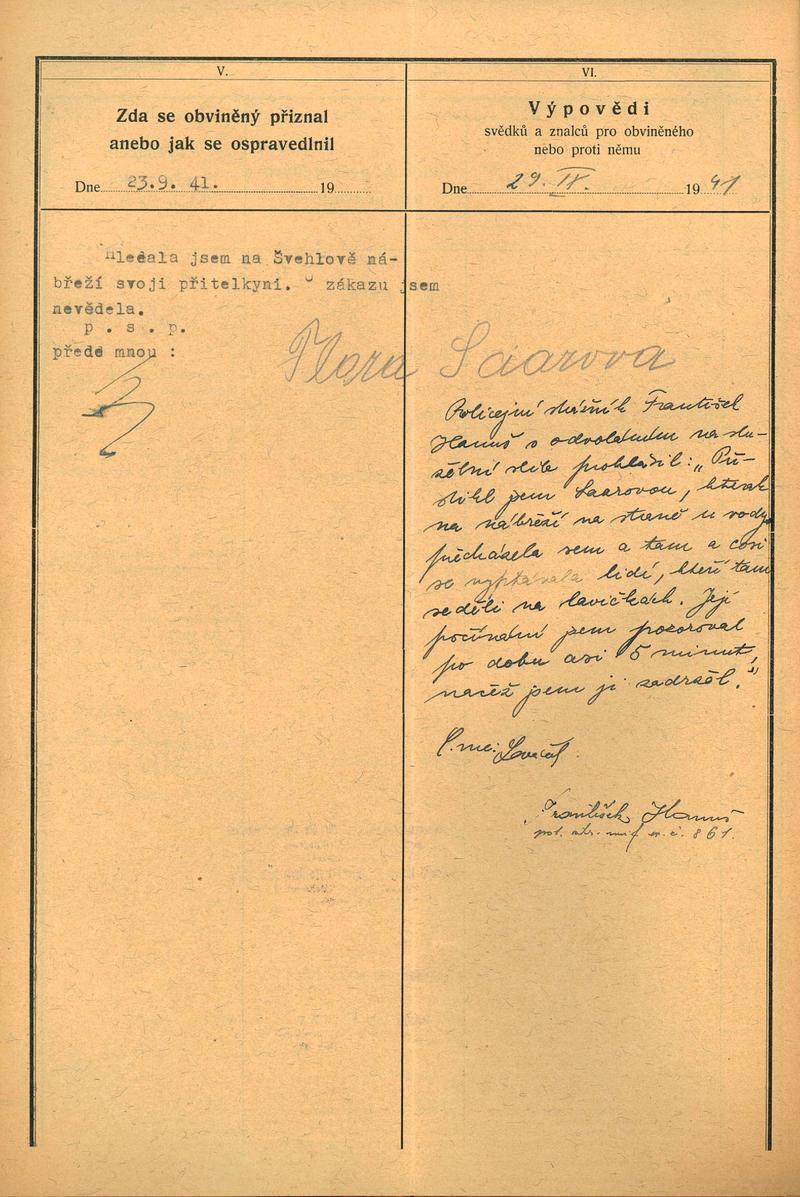 V.
Zda se obviněný přiznal
anebo jak se ospravedlnil
Dne 23.9. 41. 19
Hledala jsem na Švehlově ná-
břeží svoji přítelkyni. O zákazu jsem
nevěděla.
p . s . p.
přede mnou :
Flora Saarova
VI.
Výpovědi
svědků a znalců pro obviněného
nebo proti němu
Dne 29. IX. 19 41
Policejní strážník František
Hanuš s odvoláním na slu-
žební slib prohlásil: „Při-
stihl jsem Saarovou, kterak
na nábřeží na straně u vody
přecházela sem a tam a cosi
se vyptávala lidí, kteří tam
seděli na lavičkách. Její
počínání jsem pozoroval
po dobu asi 5 minut,
načež jsem ji zadržel."
František Hanuš
pol. str. č. 861.